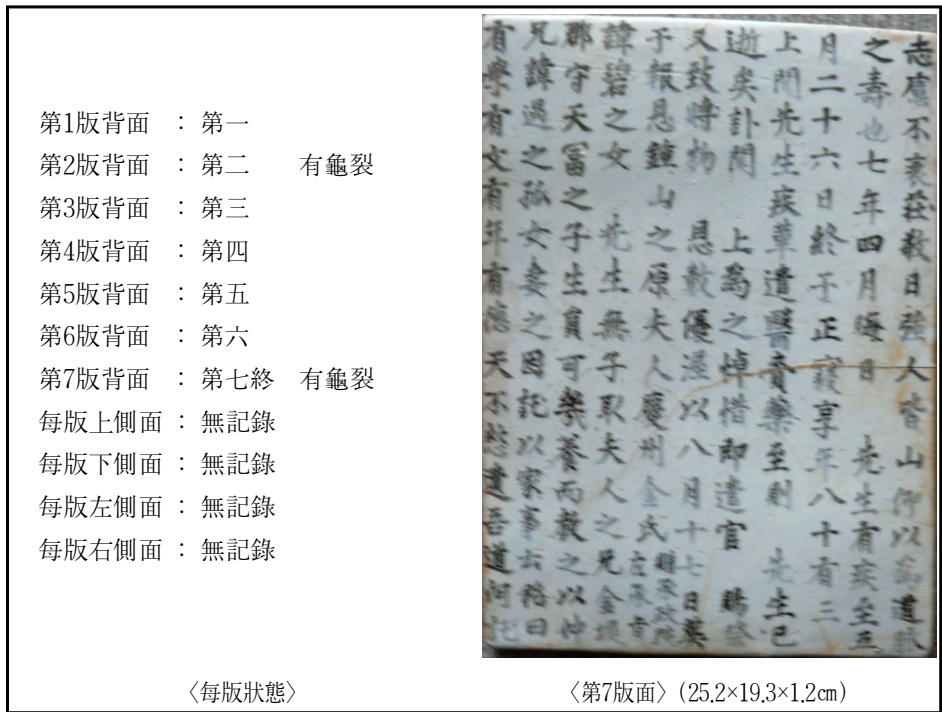 第1版背面 : 第一
第2版背面 : 第二 有龜裂
第3版背面 : 第三
第4版背面 : 第四
第5版背面 : 第五
第6版背面 : 第六
第7版背面 : 第七終 有龜裂
每版上側面 : 無記錄
每版下側面 : 無記錄
每版左側面 : 無記錄
每版右側面 : 無記錄
〈每版狀態〉
志慮不衰莊敬日強人皆山仰以爲道脉
之壽也七年四月晦日 先生有疾至五
月二十六日終于正寢享年八十有三
上聞先生疾革遣醫賚藥至則 先生已
逝矣訃聞 上爲之悼惜即遣官 賜祭
又致賻物 恩數優渥以八月十七日葬
于報恩鍾山之原夫人慶州金氏贈承政院左承旨
諱碧之女 先生無子取夫人之兄金堤
郡守天富之子生員可幾養而教之以仲
兄諱過之孤女妻之因託以家事云銘曰
有學有文有年有德天不憖遺吾道何托
〈第7版面〉(25.2×19.3×1.2㎝)